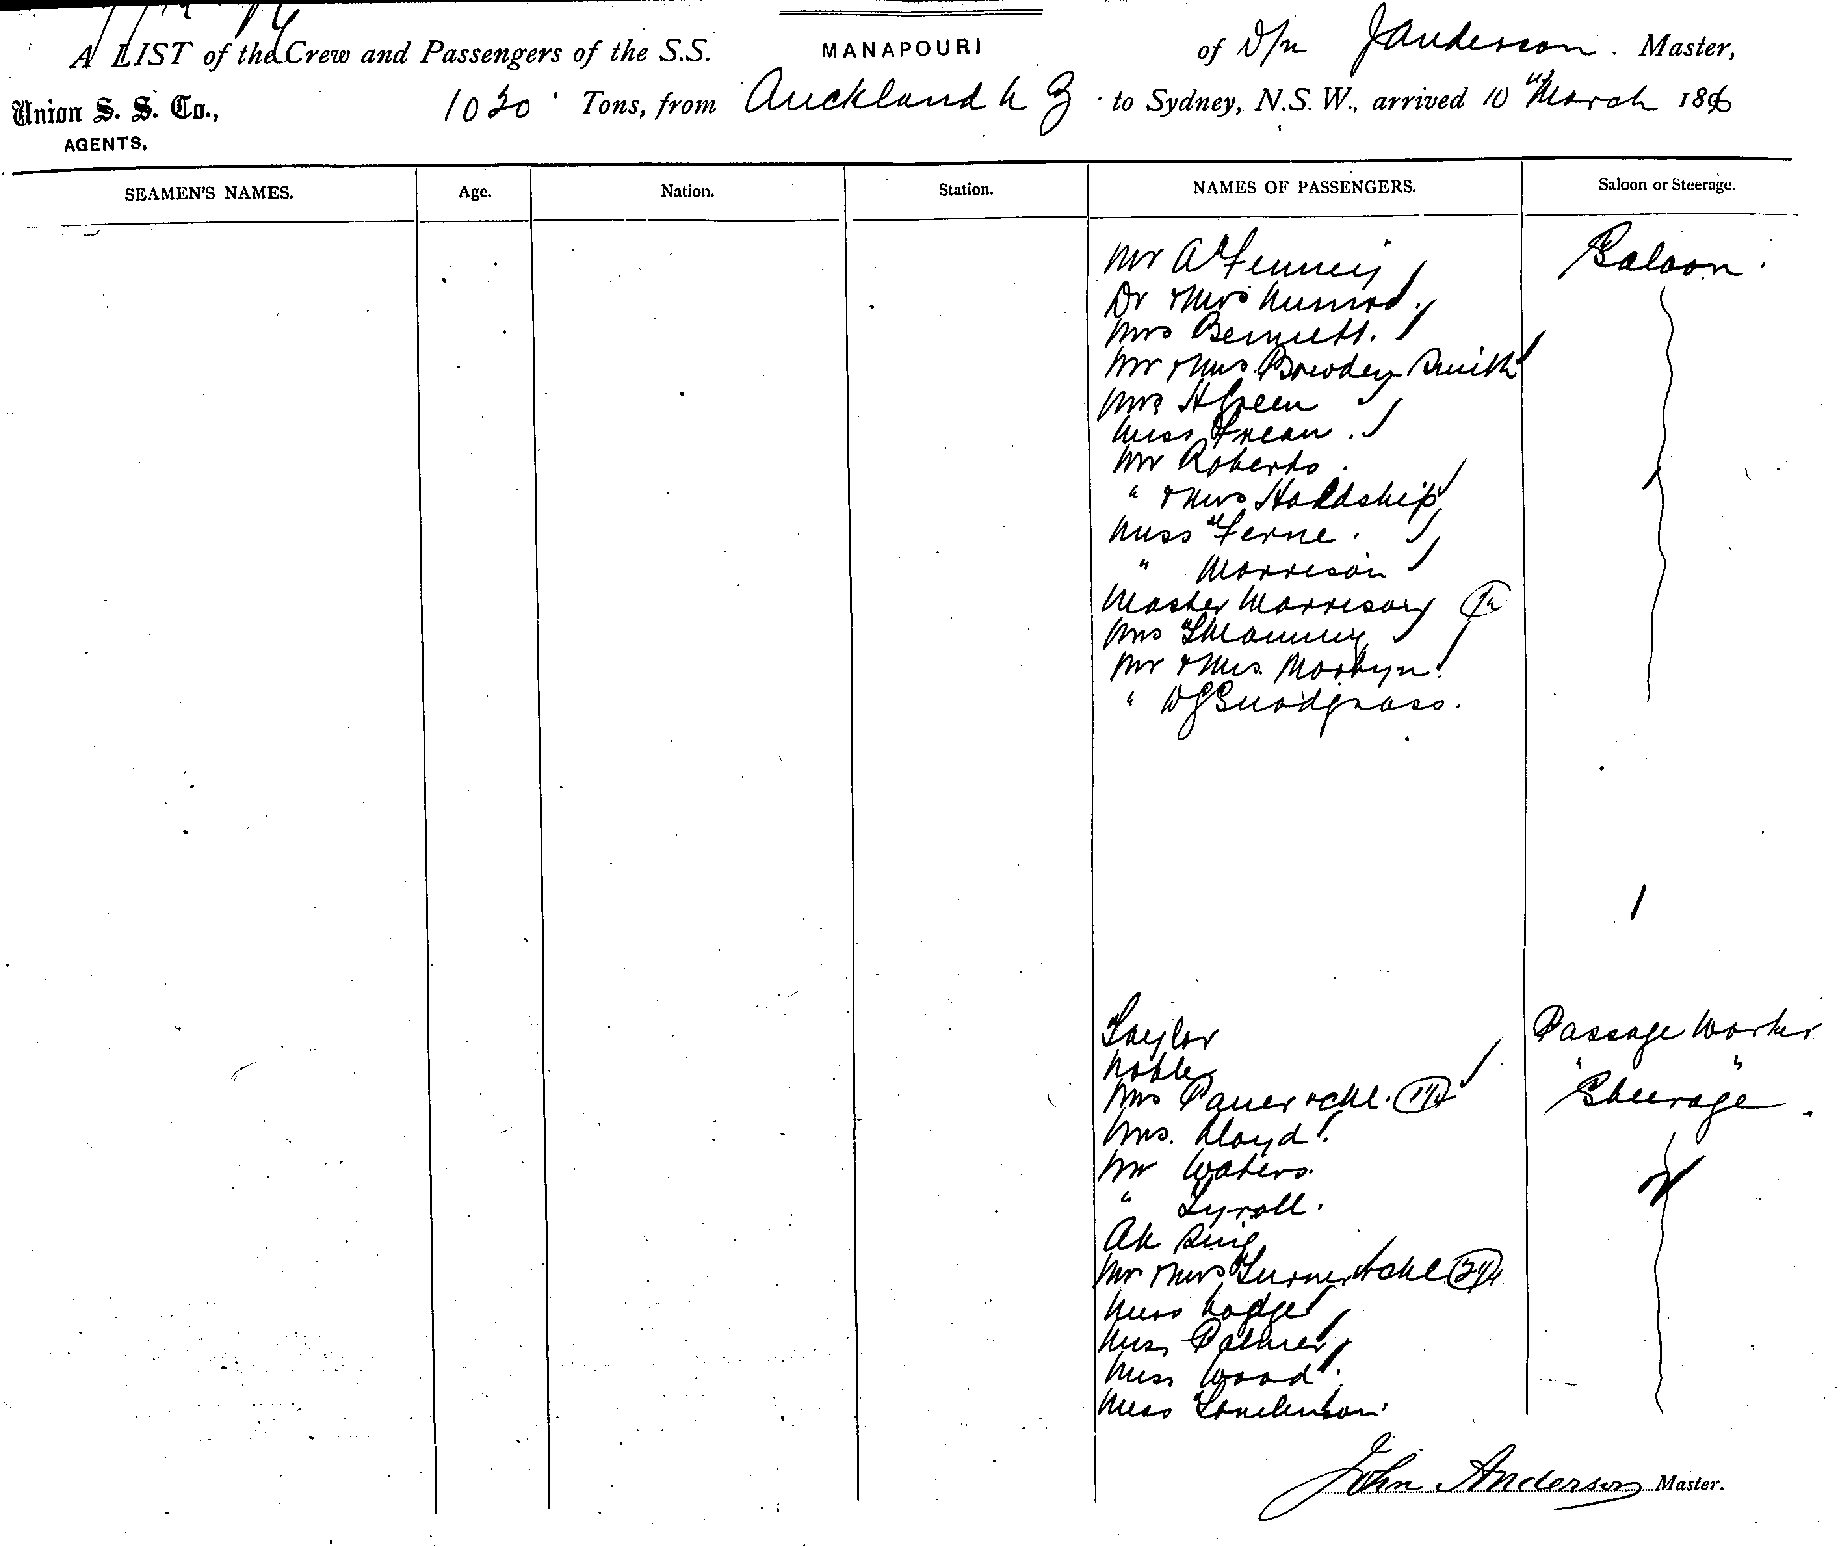 A LIST of the Crew and Passengers of the S.S. MANAPOURI of D/n J Anderson. Master,
Union S. S. Co., 1020 Tons, from Auckland N Z to Sydney, N.S.W., arrived 10th March 18
AGENTS.
SEAMEN'S NAMES. Age. Nation. Station. NAMES OF PASSENGERS. Saloon or Steerage.
Mr A Saloon.
Dr & Mrs
Mrs Bennett.
Mr & Mrs Bowden Smith
Mrs H Green
Miss
Mr Roberts.
" & Mrs Hardship
Miss Ferne.
" Morrison
Master Morrison
Mrs
Mr & Mrs Martyn
" Snodgrass.
Taylor Passage Worker
Noble " "
Mrs & chl. Steerage.
Mrs. Lloyd
Mr Waters.
" Tyroll.
Ah Sing
Mr & Mrs Turner & chl
Miss Lodge
Miss Palmer
Miss Wood
Miss Tomlinson.
John Anderson Master.